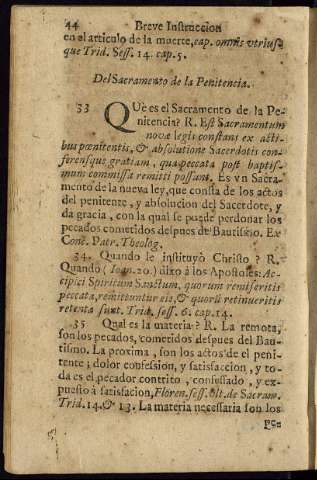 44 Breve Instruccion
en el articulo de la muerte, cap. omnis vtrius-
que Trid. Sess. 14. cap. 5.
Del Sacramento de la Penitencia.
33 QUè es el Sacramento de la Pe-
nitencia? R. Est Sacramentum
novæ legis constans ex acti-
bus pœnitentis, & absolutione Sacerdotis con-
ferensque gratiam, qua peccata post baptis-
mum commissa remitti possunt. Es vn Sacra-
mento de la nueva ley, que consta de los actos
del penitente, y absolucion del Sacerdote, y
da gracia, con la qual se puede perdonar los
pecados cometidos despues de Bautismo. Ex
Conc. Patr. Theolog.
34. Quando le instituyò Christo? R.
Quando (Ioan. 20.) dixo à los Apostoles: Ac-
cipici Spiritum Sanctum, quorum remiseritis
peccata, remittuntur eis, & quorũ retinueritis
retenta sunt. Trid. sess. 6. cap. 14.
35 Qual es la materia? R. La remota,
son los pecados, cometidos despues del Bau-
tismo. La proxima, son los actos de el peni-
tente; dolor confession, y satisfaccion, y to-
da es el pecador contrito, confessado, y ex-
puesto à satisfacion, Floren. sess. vlt. de Sacram.
Trid. 14. & 13. La materia necessaria son los
pe-